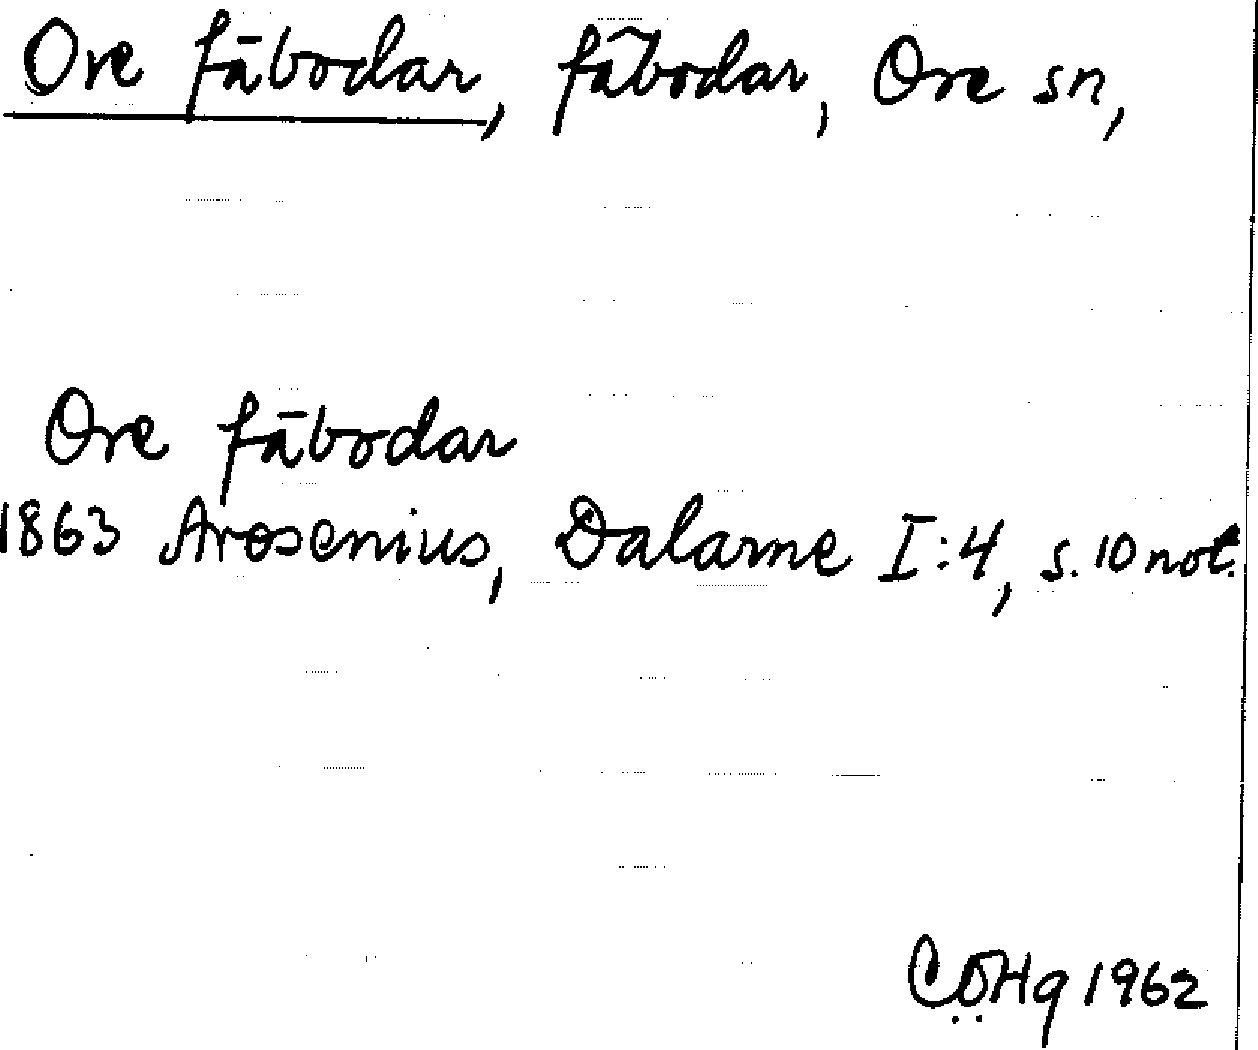 Ore fäbodar, fäbodar, Ore sn,
Ore fäbodar
1863 Arosenius, Dalarne I:4, s. 10 not.
CÖHg 1962